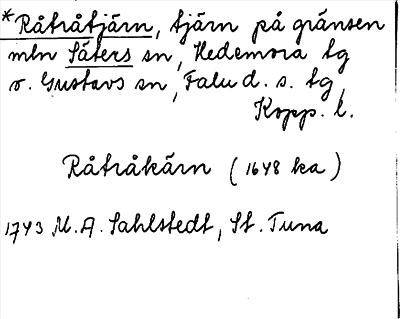 *Råtråtjärn, tjärn på gränsen
mln Säters sn, Hedemora tg
o. Gustavs sn, Falu d. s. tg,
Kopp. l.
Råtråkärn (1648 ka)
1743 M. A. Sahlstedt, St. Tuna